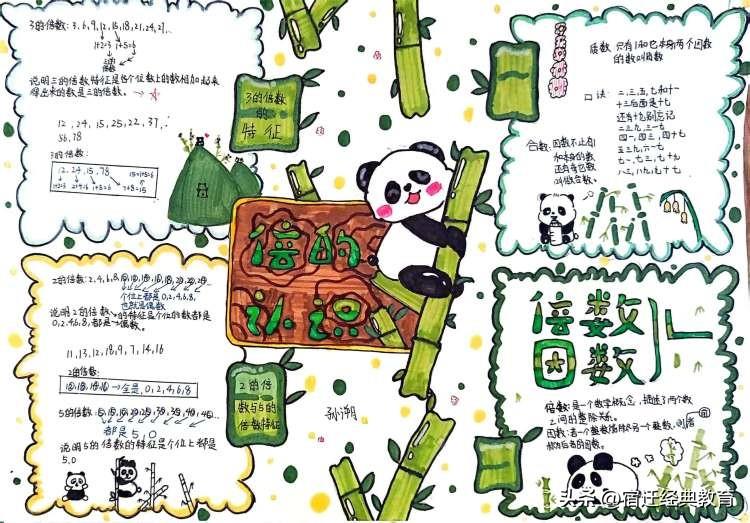 3的倍数: 3,6,9,12,15,18,21,24,27,…
1+2=3 1+5=6
说明三的倍数特征是各个位数上的数相加起来
得出来的数是三的倍数。
12,24,15,25,22,37,
56,78
3的倍数:
12,24,15,78
1+2=3 2+4=6 1+5=6 7+8=15
15=1+5=6
3的倍数
的
特征
质数 只有1和它本身两个因数
的数叫质数
口诀: 二、三、五、七和十一
十三后面是十七
还有十九别忘记
二三九,三一七
四一,四三,四十七
五三九,六一七
七一、七三、七十九
八三、八九、九十七
合数: 因数不止有
1和本身的数
还有其它数
叫做合数。
倍的
认识
2的倍数: 2,4,6,8,10,12,14,16,18,20,22,24…
个位上都是0,2,4,6,8,
也就是偶数
说明2的倍数的特征是个位的数都是
0,2,4,6,8,都是偶数。
11,13,12,18,9,7,14,16
2的倍数:
12,18,14,16→全是,0,2,4,6,8
5的倍数: 5,10,15,20,25,30,35,40,45…
都是5,0
说明5的倍数的特征是个位上都是
5,0
2的倍
数与5的
倍数特征
孙潮
倍数
因数
倍数:是一个数学概念,描述了两个数
之间的整除关系。
因数:若一个整数能被另一个整数
头条@宿迁经典教育